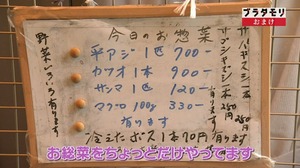 ブラタモリ
おまけ
今日のお惣菜
平アジ 1匹 700-
カツオ 1本 900-
サンマ 1匹 120-
マグロ 100g 330-
有ります
冷えたボス 1本70円 有ります
野菜いろいろ有ります
お総菜をちょっとだけやってます